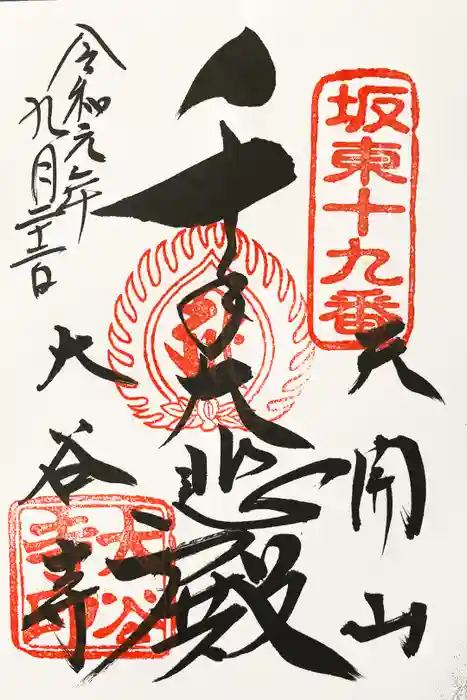 坂東十九番
天開山
千手大悲殿
令和元年
九月二十二日
大谷寺
大谷
寺印